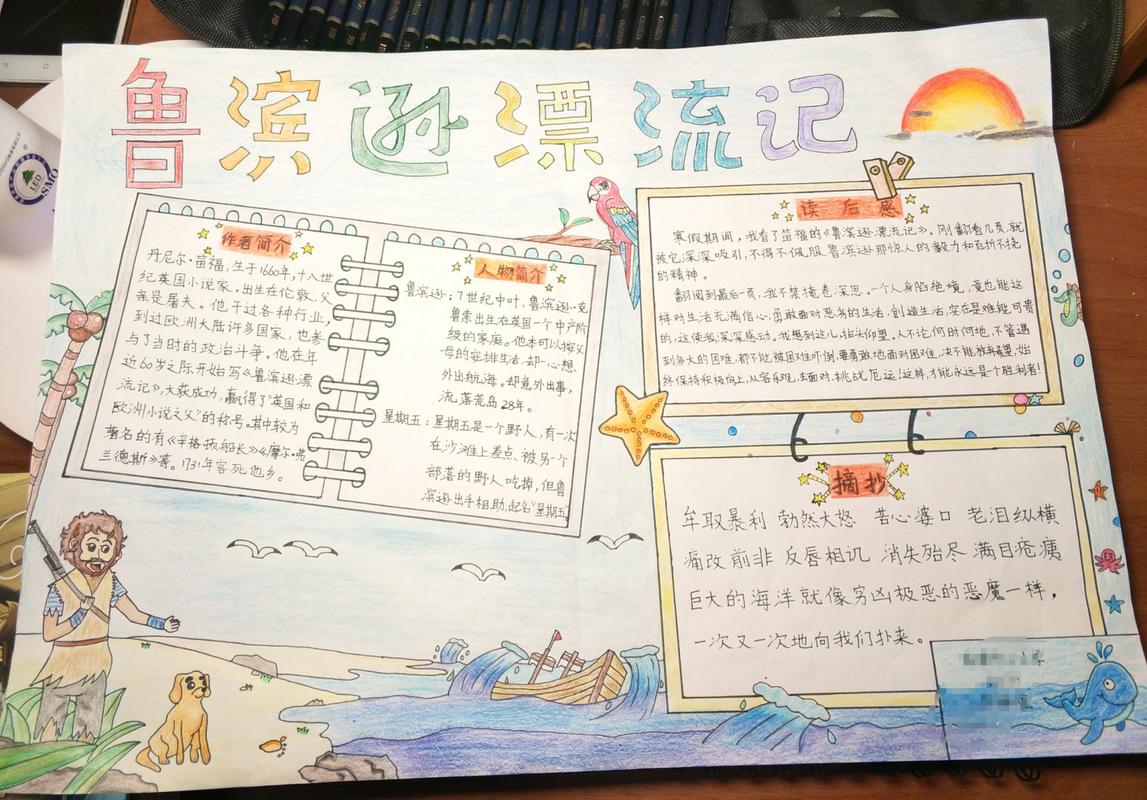 鲁滨逊漂流记
作者简介
丹尼尔·笛福,生于1660年,十八世
纪英国小说家。出生在伦敦,父
亲是屠夫。他干过各种行业,
到过欧洲大陆许多国家,也参
与了当时的政治斗争。他在年
近60岁之际开始写《鲁滨逊漂
流记》,大获成功,赢得了"英国和
欧洲小说之父"的称号。其中较为
著名的有《辛格顿船长》《摩尔·弗
兰德斯》等。1731年客死他乡。
人物简介
鲁滨逊:7世纪中叶,鲁滨逊·克
鲁索出生在英国一个中产阶
级的家庭。他本可以按父
母的安排生活,却一心想
外出航海。却意外出事,
流落荒岛28年。
星期五:星期五是个野人,有一次
在沙滩上差点被另一个
部落的野人吃掉,但鲁
滨逊出手相助,起名"星期五"
读后感
寒假期间,我看了笛福的《鲁滨逊漂流记》。刚翻看几页,就
被它深深吸引,不得不佩服鲁滨逊那惊人的毅力和百折不挠
的精神。
翻阅到最后一页,我不禁掩卷深思。一个人身陷绝境,竟也能这
样对生活充满信心,勇敢面对恶劣的生活,创造生活,实在是难能可贵
的,这使我深深感动。我想到这儿,抬头仰望。人不论何时何地,不管遇
到多大的困难,都不能被困难吓倒,要勇敢地面对困难,决不能放弃希望,始
终保持积极向上,从容乐观,去面对,挑战厄运!这样,才能永远是个胜利者!
摘抄
牟取暴利 勃然大怒 苦心婆口 老泪纵横
痛改前非 反唇相讥 消失殆尽 满目疮痍
巨大的海洋就像穷凶极恶的恶魔一样,
一次又一次地向我们扑来。
LED